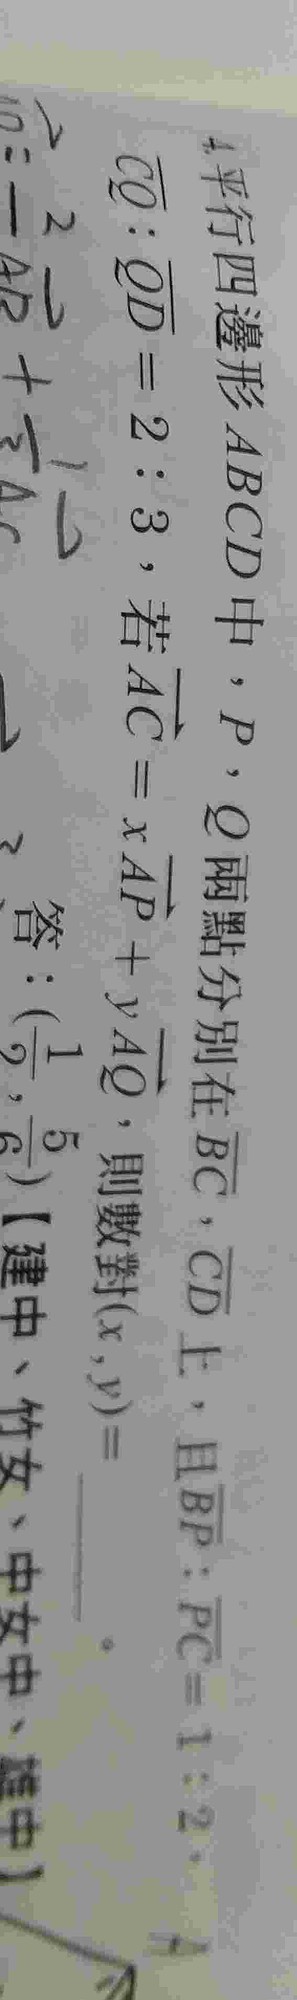 4.平行四邊形 ABCD 中，P，Q 兩點分別在 BC，CD 上，且 BP：PC = 1：2，
CQ：QD = 2：3，若 AC = x AP + y AQ，則數對(x , y) = ______。
答：(1/2 , 5/6)【建中、竹女、中女中、雄中】